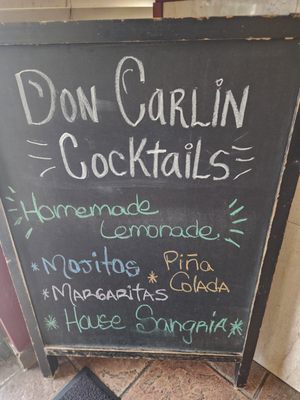 Don Carlin
Cocktails
Homemade
Lemonade
Mojitos
Piña
Colada
Margaritas
House Sangria